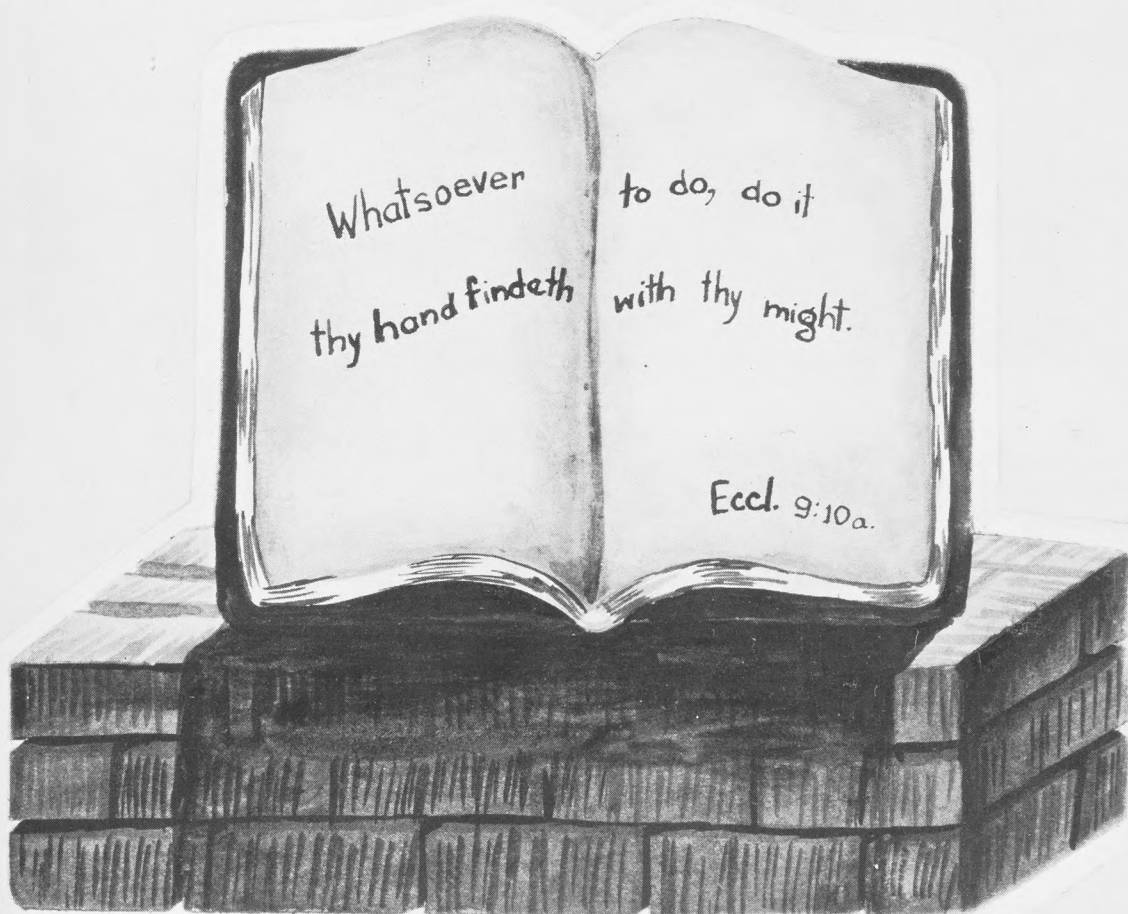 Whatsoever
thy hand findeth
to do, do it
with thy might.
Eccl. 9:10a.